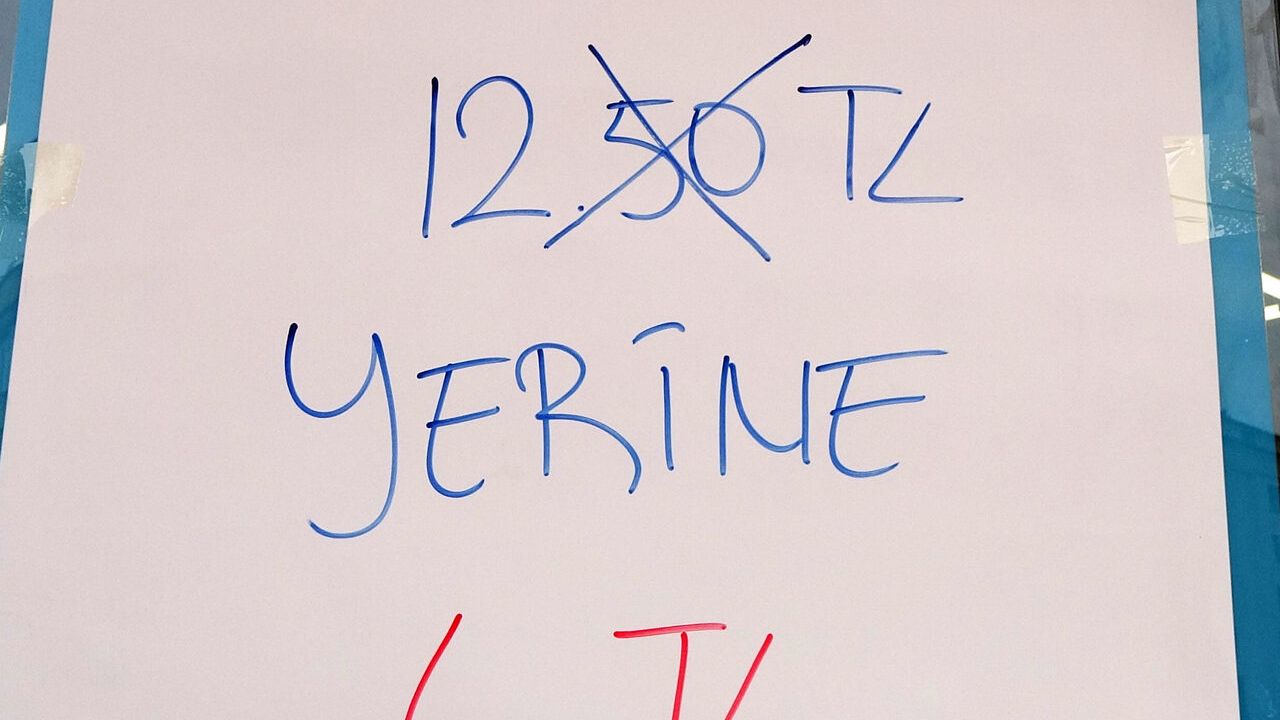 12.50 TL
YERİNE
TL